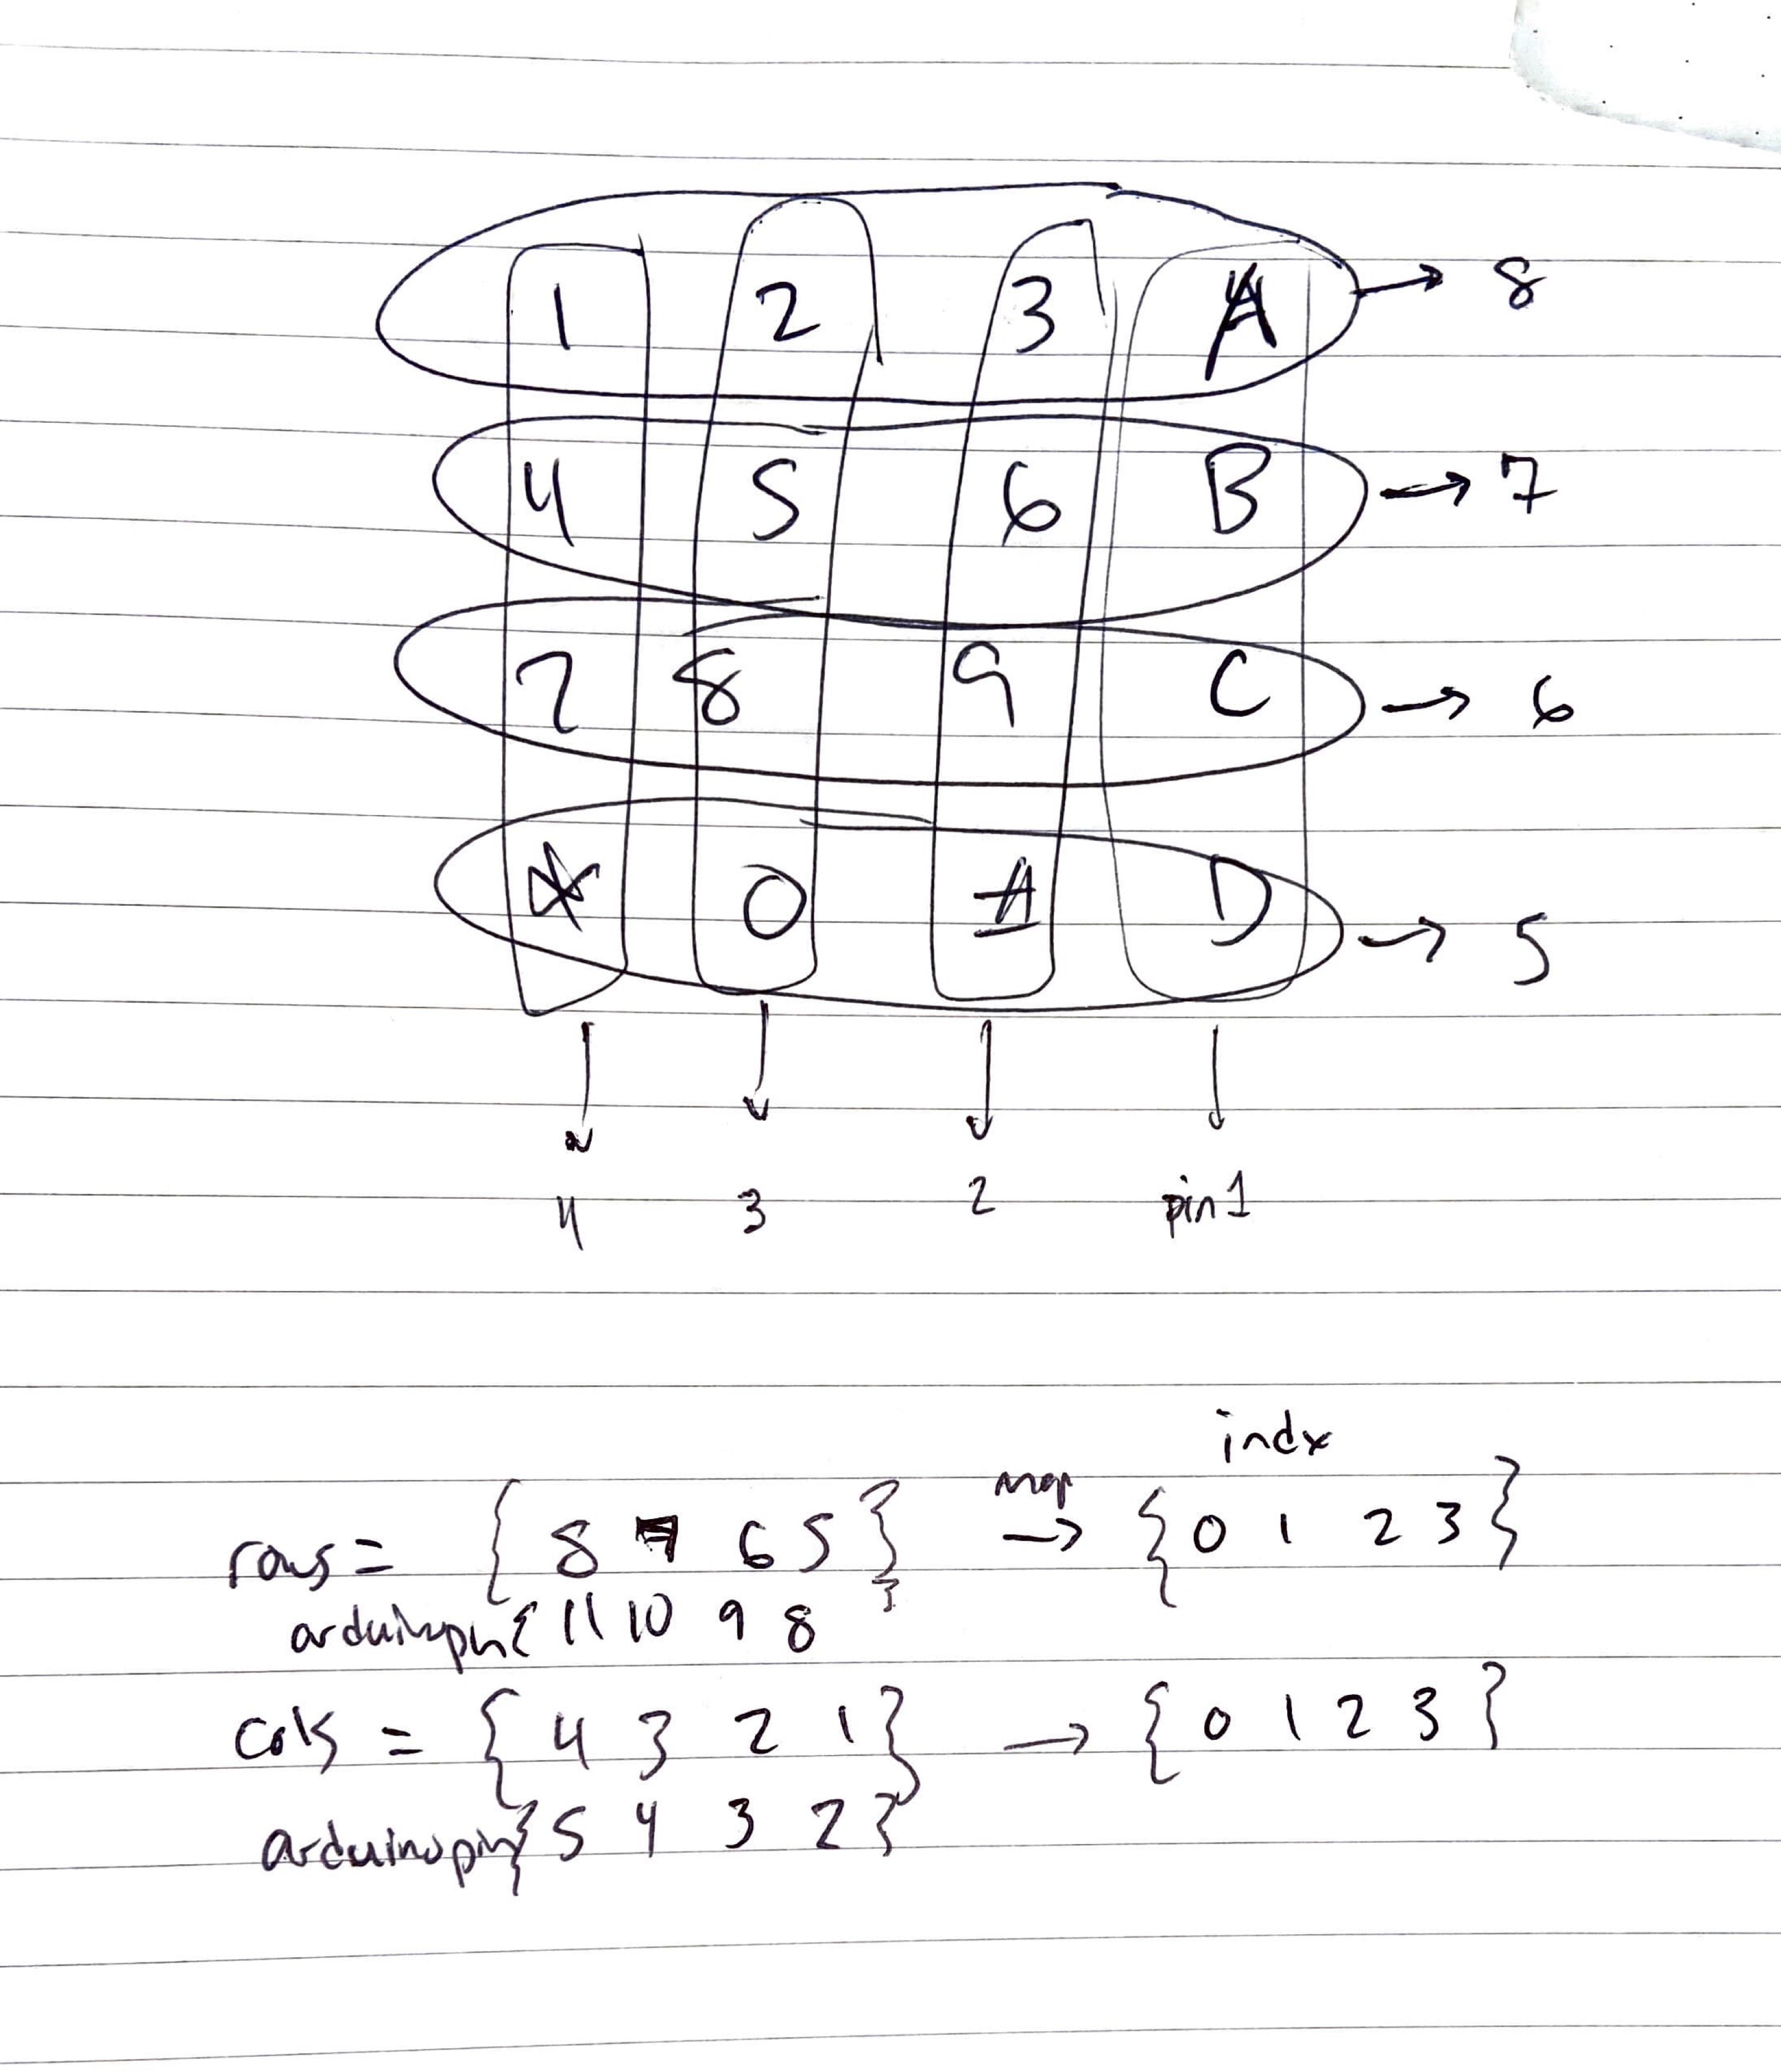 1 2 3 A → 8
4 5 6 B → 7
7 8 9 C → 6
* 0 # D → 5
4 3 2 pin 1
indx
map
rows = { 8 7 6 5 } → { 0 1 2 3 }
arduinopin { 11 10 9 8 }
cols = { 4 3 2 1 } → { 0 1 2 3 }
arduinopin { 5 4 3 2 }